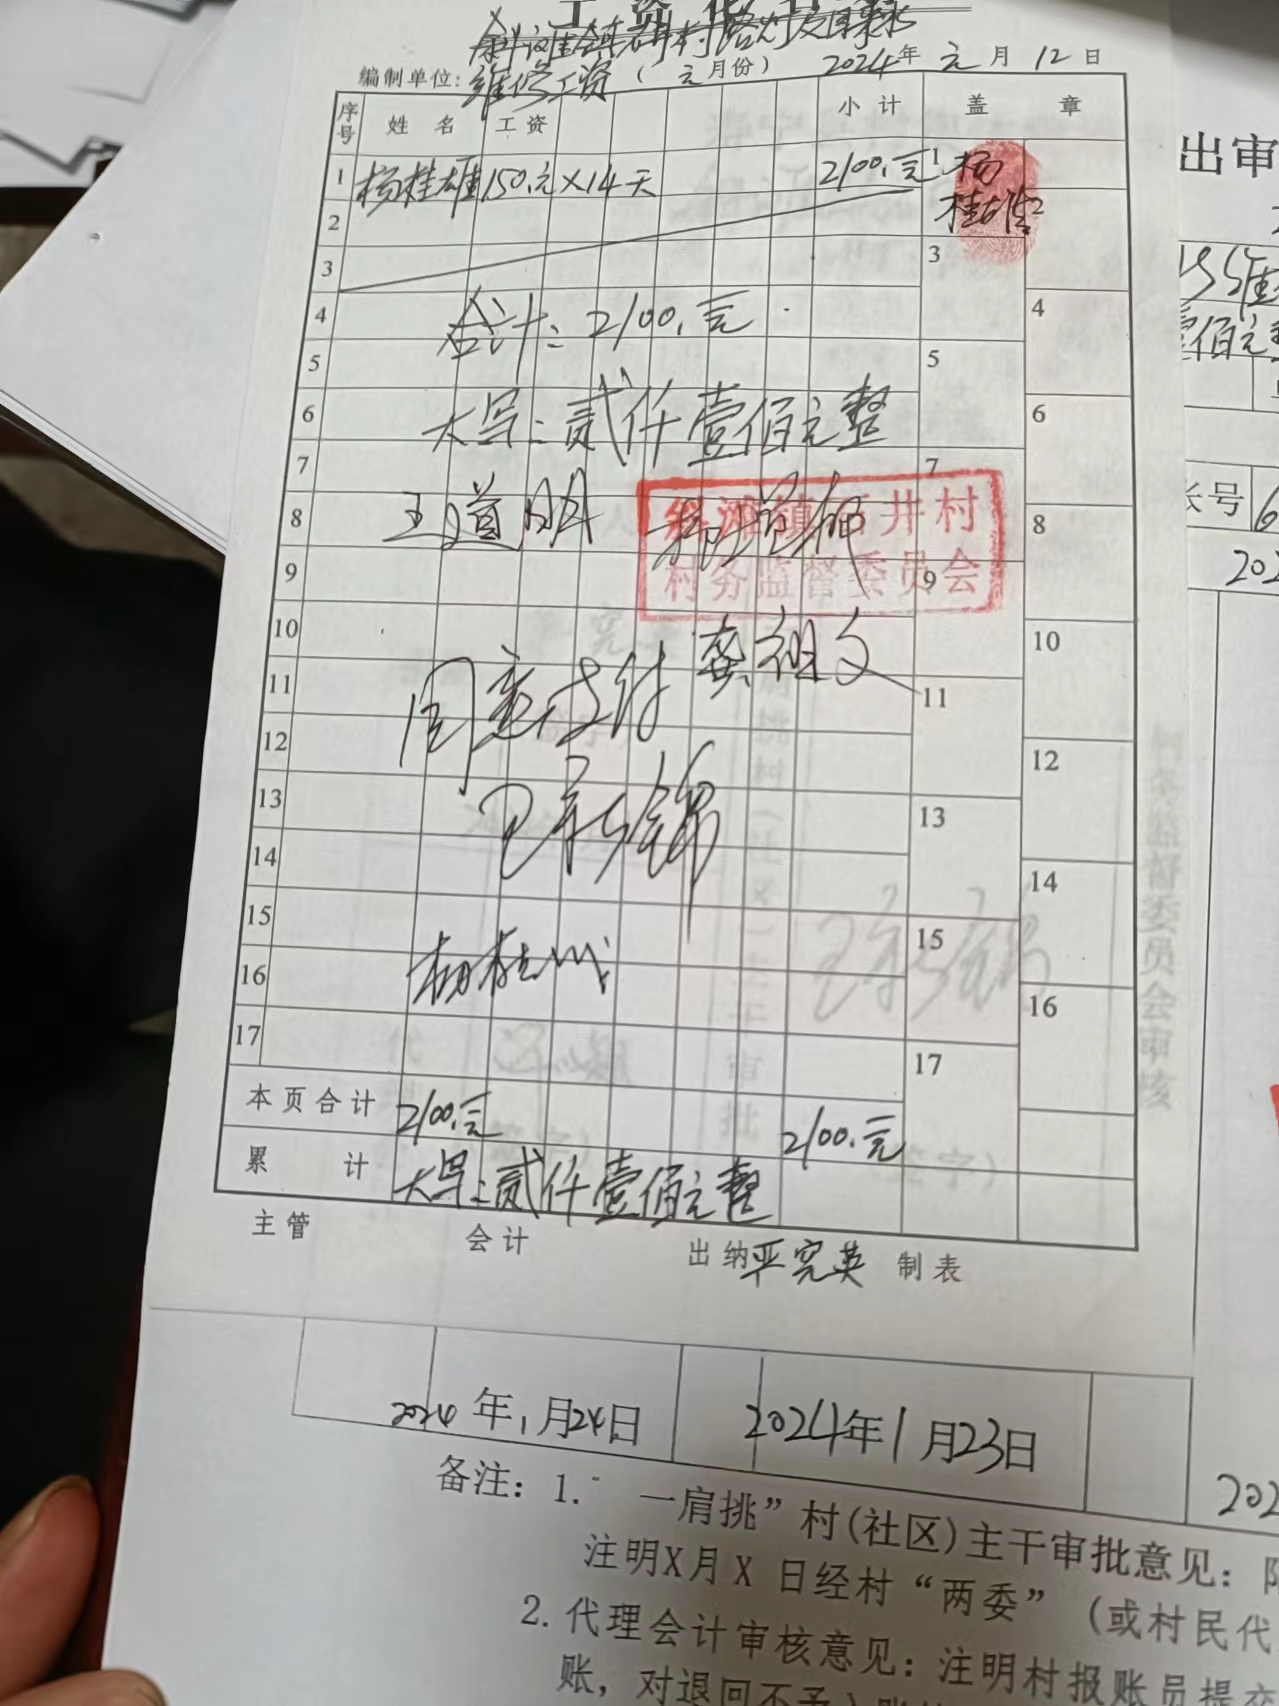 斜滩镇石井村路灯及自来水
编制单位：维修工资（元月份） 2024年元月12日
序号 姓名 工资 小计 盖章
1 杨桂雄 150.元×14天 2100.元 1 杨桂雄 2
2
3 3
4 合计：2100.元 4
5 5
6 大写：贰仟壹佰元整 6
7 7
8 王道明 8
斜滩镇石井村
村务监督委员会
9 9
10 龚祖文 10
11 同意支付 11
12 12
13 13
14 14
15 15
16 16
17 17
本页合计 2100.元 2100.元
累计 大写：贰仟壹佰元整
主管 会计 出纳 平宪英 制表
2024年1月24日 2024年1月23日
备注：1. 一肩挑”村(社区)主干审批意见：
注明X月X日经村“两委”(或村民代
2.代理会计审核意见：注明村报账员提交
账，对退回不予
出审
佰元
账号 6
202
202